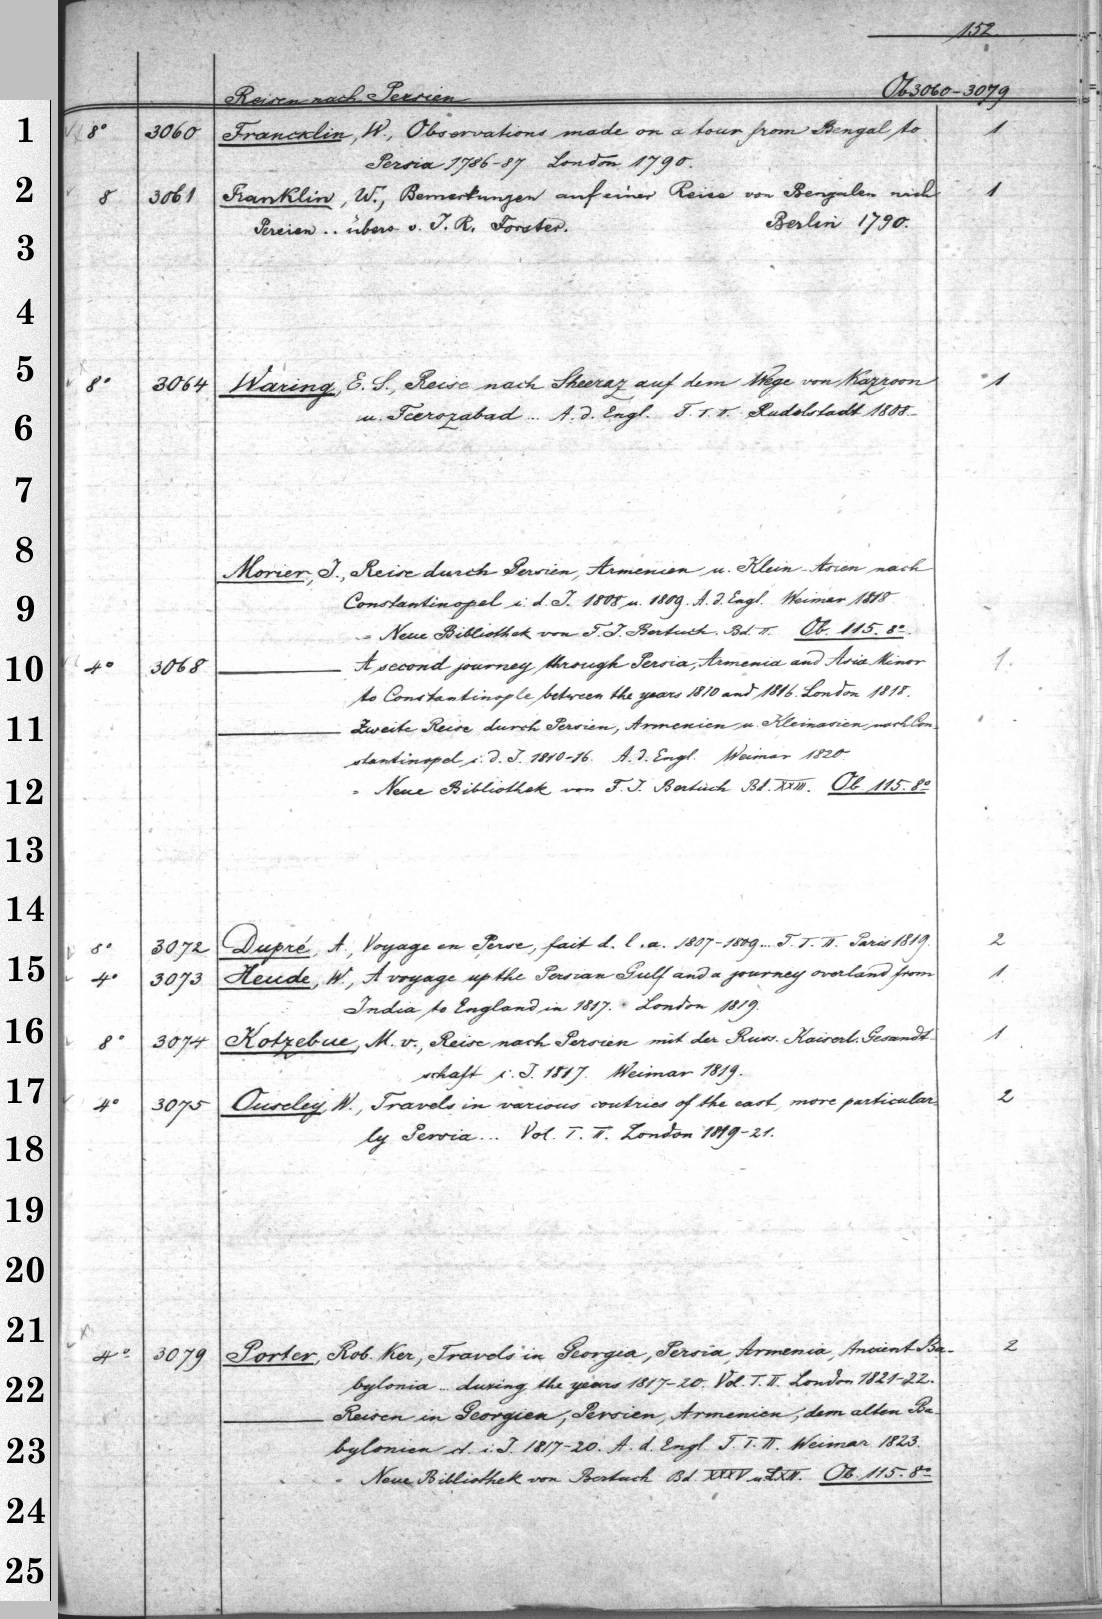 152.
Reisen nach Persien Ob3060-3079
1
8° 3060 Francklin, W., Observations made on a tour from Bengal to 1
Persia 1786-87 London 1790.
2
8 3061 Franklin, W., Bemerkungen auf einer Reise von Bengalen nach 1
Persien .. übers v. J. R. Forster. Berlin 1790.
3
4
5
8° 3064 Waring, E. S., Reise nach Sheeraz auf dem Wege von Kazroon 1
u. Feerozabad ... A. d. Engl. T. I. II. Rudolstadt 1808.
6
7
8
Morier, J., Reise durch Persien, Armenien u. Klein-Asien nach
9
Constantinopel i. d. J. 1808 u. 1809. A. d. Engl. Weimar 1818
= Neue Bibliothek von F. J. Bertuch. Bd. II. Ob. 115. 8°.
10
4° 3068 ——— A second journey through Persia, Armenia and Asia Minor 1.
to Constantinople between the years 1810 and 1816. London 1818.
11
——— Zweite Reise durch Persien, Armenien u. Kleinasien nach Con-
stantinopel i. d. J. 1810-16. A. d. Engl. Weimar 1820
12
= Neue Bibliothek von F. J. Bertuch Bd. XXIII. Ob. 115. 8°
13
14
8° 3072 Dupré, A., Voyage en Perse, fait d. l. a. 1807-1809... T. I. II. Paris 1819. 2
15
4° 3073 Heude, W., A voyage up the Persian Gulf and a journey overland from 1
India to England in 1817. London 1819.
16
8° 3074 Kotzebue, M. v., Reise nach Persien mit der Russ. Kaiserl. Gesandt- 1
schaft i. J. 1817. Weimar 1819.
17
4° 3075 Ouseley, W., Travels in various coutries of the east, more particular- 2
ly Persia ... Vol. I. II. London 1819-21.
18
19
20
21
4° 3079 Porter, Rob. Ker, Travels in Georgia, Persia, Armenia, Ancient Ba- 2
22
bylonia ... during the years 1817-20. Vol. I. II. London 1821-22.
——— Reisen in Georgien, Persien, Armenien, dem alten Ba-
23
bylonien i. J. 1817-20. A. d. Engl. T. I. II. Weimar 1823.
= Neue Bibliothek von Bertuch Bd. XXXV u. LXII. Ob. 115. 8°
24
25